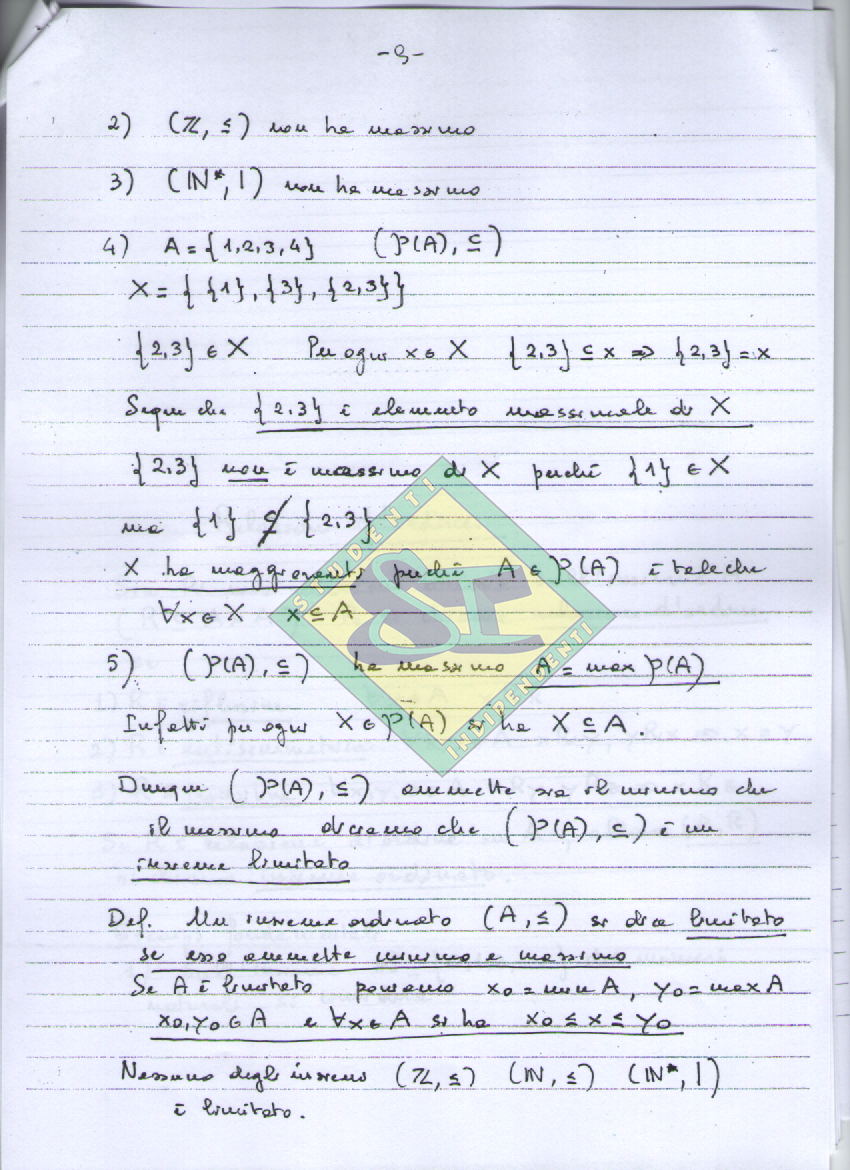 -9-
2) (ℤ, ≤) non ha massimo
3) (ℕ*, |) non ha massimo
4) A = {1,2,3,4} (P(A), ⊆)
X = { {1}, {3}, {2,3} }
{2,3} ∈ X Per ogni x ∈ X {2,3} ⊆ x ⇒ {2,3} = x
Segue che {2,3} è elemento massimale di X
{2,3} non è massimo di X perché {1} ∈ X
ma {1} ⊈ {2,3}
X ha maggioranti perché A ∈ P(A) è tale che
∀x∈X x ⊆ A
5) (P(A), ⊆) ha massimo A = max P(A)
Infatti per ogni X ∈ P(A) si ha X ⊆ A.
Dunque (P(A), ⊆) ammette sia il minimo che
il massimo diciamo che (P(A), ⊆) è un
insieme limitato
Def. Un insieme ordinato (A, ≤) si dice limitato
se esso ammette minimo e massimo
Se A è limitato poniamo x₀ = min A, y₀ = max A
x₀, y₀ ∈ A e ∀x∈A si ha x₀ ≤ x ≤ y₀
Nessuno degli insiemi (ℤ, ≤) (ℕ, ≤) (ℕ*, |)
è limitato.
STUDENTI
SI
INDIPENDENTI